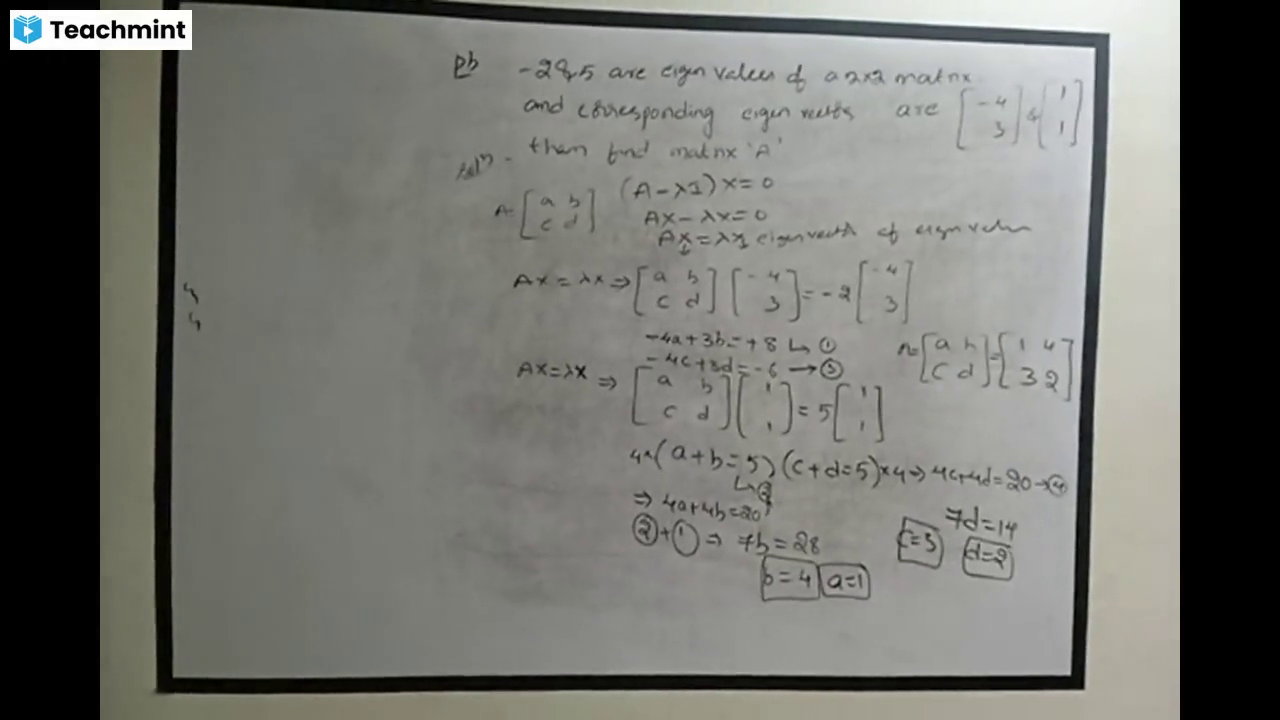 Teachmint
Pb -2 & 5 are eigen values of a 2x2 matrix
and corresponding eigen vectors are [-4 3] & [1 1]
then find matrix 'A'
Soln -
A= [a b c d] (A-λI)x=0
Ax-λx=0
Ax₁=λx₁ eigen vector of eigen value
Ax=λx ⇒ [a b c d] [-4 3] = -2 [-4 3]
-4a+3b=+8 ↳ ①
-4c+3d=-6 → ③
A=[a b c d]=[1 4 3 2]
Ax=λx ⇒ [a b c d] [1 1] = 5 [1 1]
4x(a+b=5) (c+d=5)x4 ⇒ 4c+4d=20 → ④
↳ ②
⇒ 4a+4b=20
7d=14
②+① ⇒ 7b=28
c=3 d=2
b=4 a=1